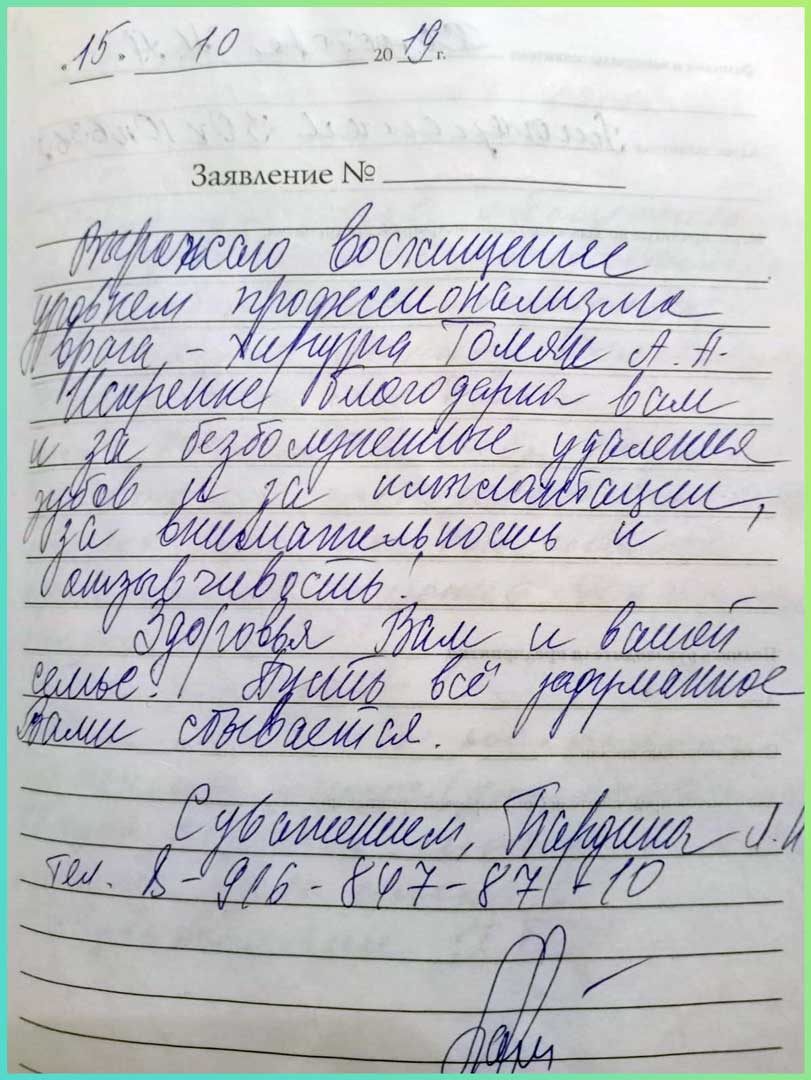 «15» 10 2019 г.
Заявление №
Выражаю восхищение
уровнем профессионализма
врача – хирурга Томян А. А.
Искренне благодарна вам
и за безболезненные удаления
зубов и за имплантации,
за внимательность и
отзывчивость!
Здоровья Вам и вашей
семье! Пусть всё задуманное
Вами сбывается.
С уважением,
тел. 8-916-847-87-10